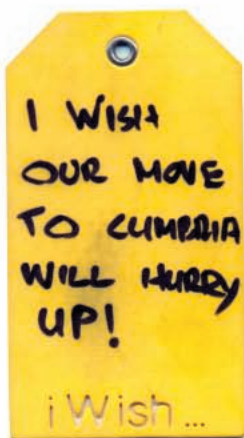 I WISH
OUR MOVE
TO CUMBRIA
WILL HURRY
UP!
i Wish ...